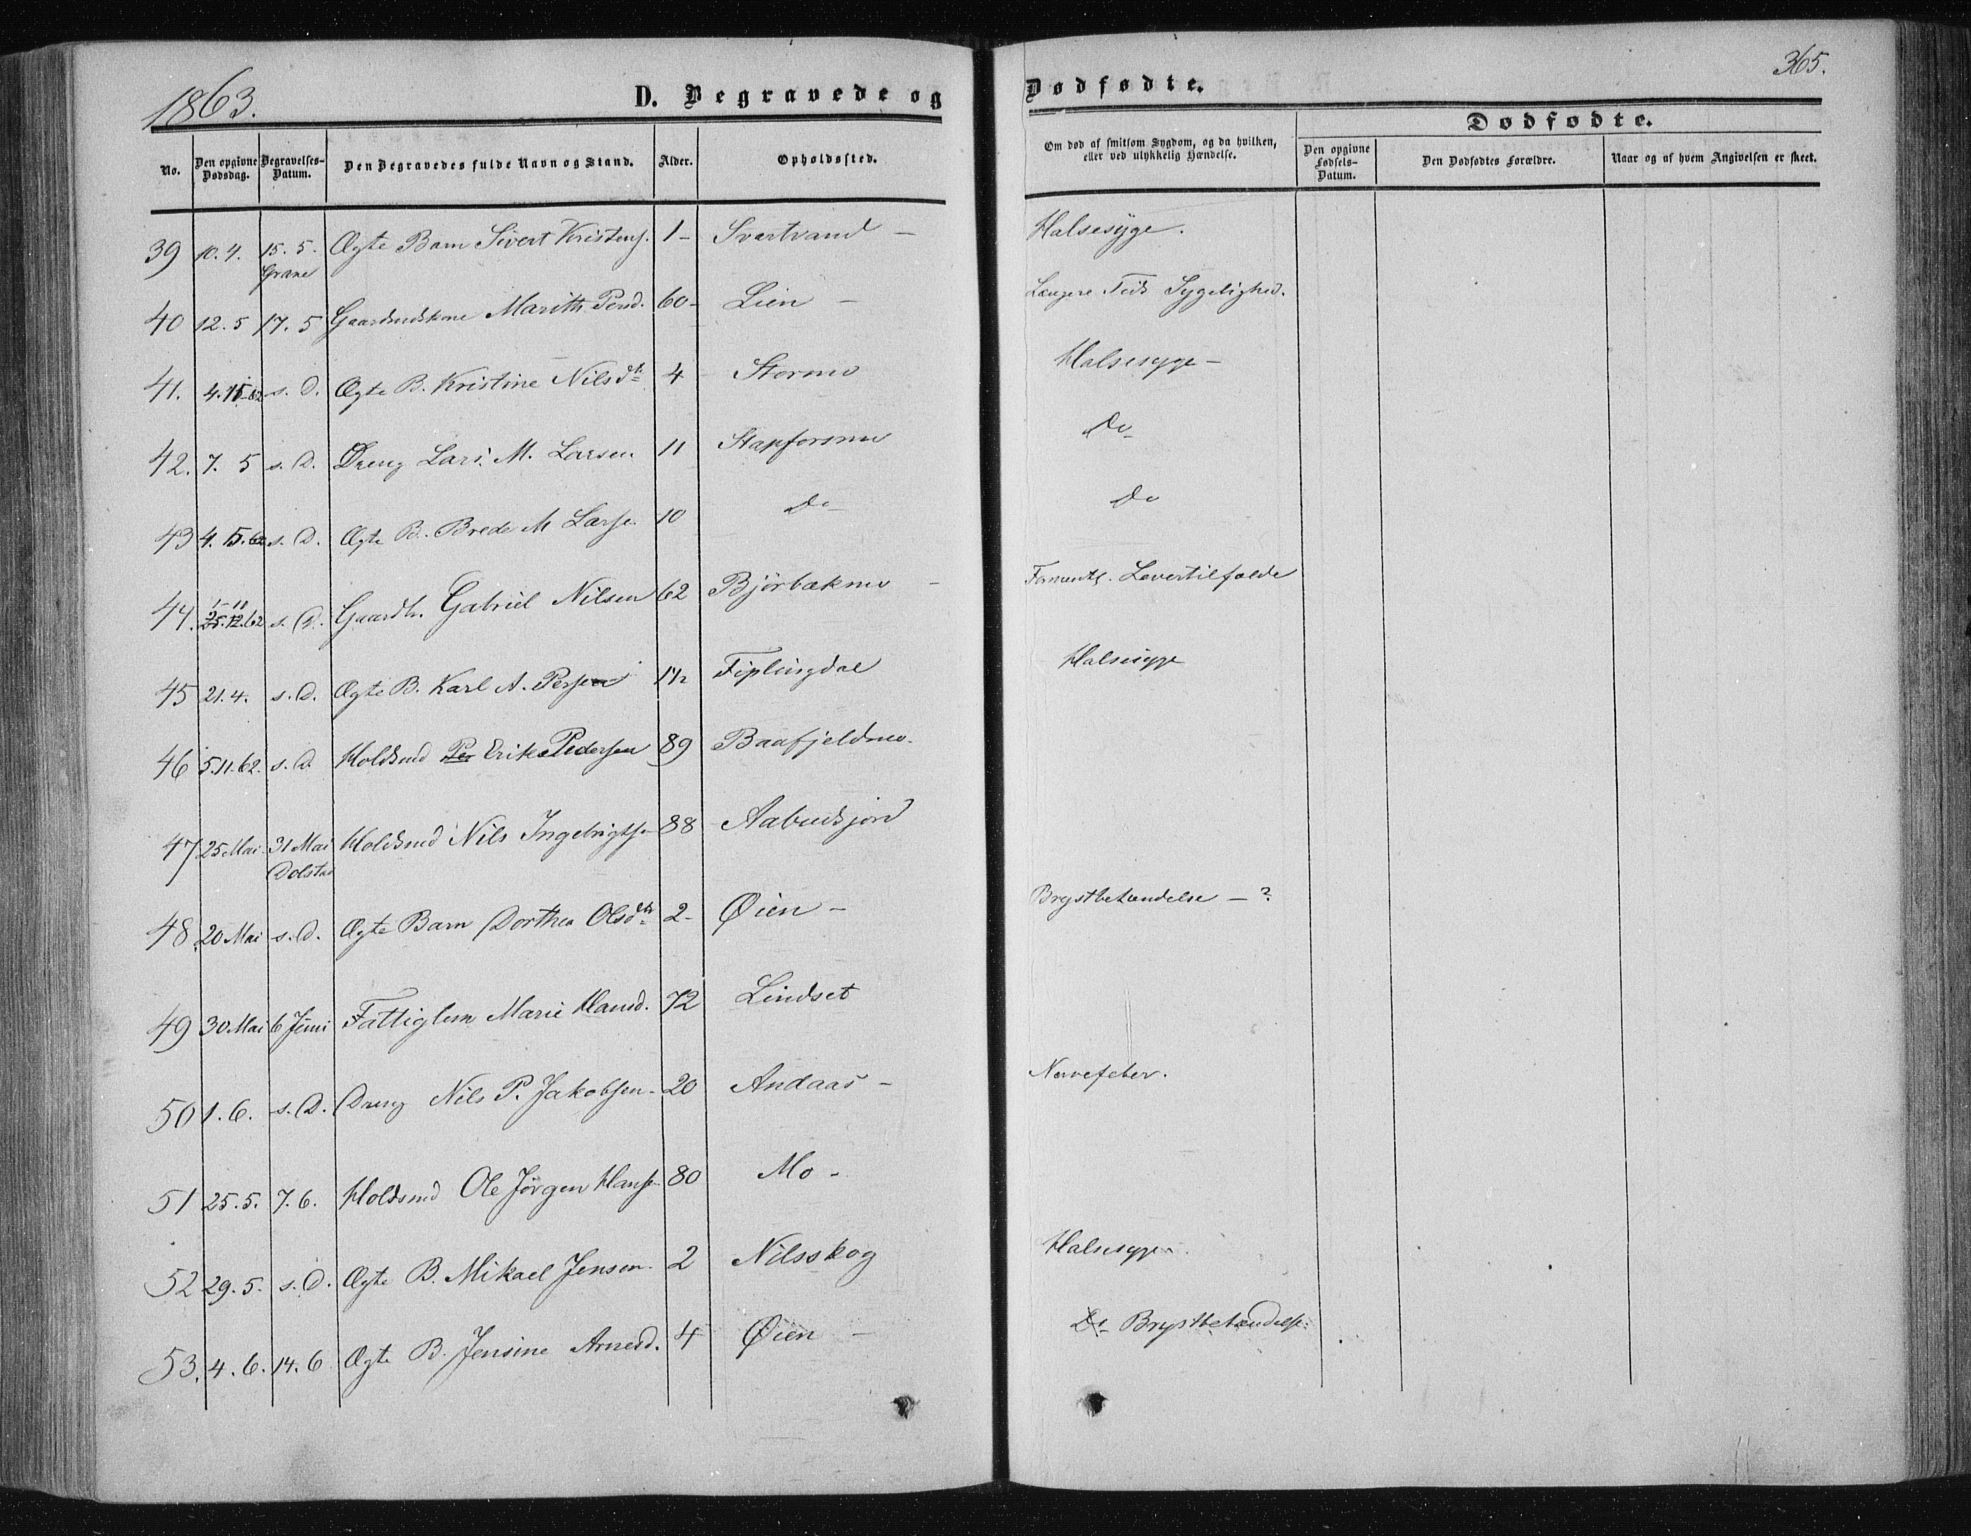 1863.
D. Begravede og
Dødfødte.
365.
Dødfødte.
No. Den opgivne Dødsdag. Begravelses-Datum. Den Begravedes fulde Navn og Stand. Alder. Opholdssted.
Om død af smitsom Sygdom, og da hvilken, eller ved ulykkelig Hændelse. Den opgivne Fødsels-Datum. Den Dødfødtes Forældre. Naar og af hvem Angivelsen er skeet.
39 10.4. 15.5. Grane Ægte Barn Sivert Kristens. 1- Svartvand - Halsesyge.
40 12.5 17.5 Marith Persd. 60- Lien - Længere Tids Sygelighed.
41. s. D. Ægte B. Kristine Nilsdtr 4 Stormo Halsesyge -
42. 7. 5 s. D. Dreng Lars. M. Larsen 11 Stapforsmo Do
43 s. D. Ægte B. Brede M Larse. 10 Do Do
44. s. D. Gaardb. Gabriel Nilsen 62 Bjørbækmo - Levertilfælde
45 21.4. s. D. Ægte B. Karl A. Persen Fiplingdal Halsesyge
46 5.11.62. s. D. Holdsmd Per Erik Pedersen 89 Baafjeldmo.
47 25 Mai 31 Mai Dolstad Holdsmd Nils Ingebrigtse 88
48. 20 Mai s. D. Ægte Barn Dorthea Olsdtr 2- Øien - Brystbetændelse - ?
49 30 Mai 6 Juni Fattiglem Marie Hansd. 72 Lindset
50 1.6. s. D. Dreng Nils P. Jakobsen. 20 Andaas - Nervefeber.
51 25.5. 7.6. Holdsmd Ole Jørgen Hanse 80 Mo -
52 29.5. s. D. Ægte B. Mikael Jensen. 2 Nilsskog Halsesyge.
53. 4.6. 14.6 Ægte B. Jensine Arnesd. 4 Øien - Do Brystbetændelse.